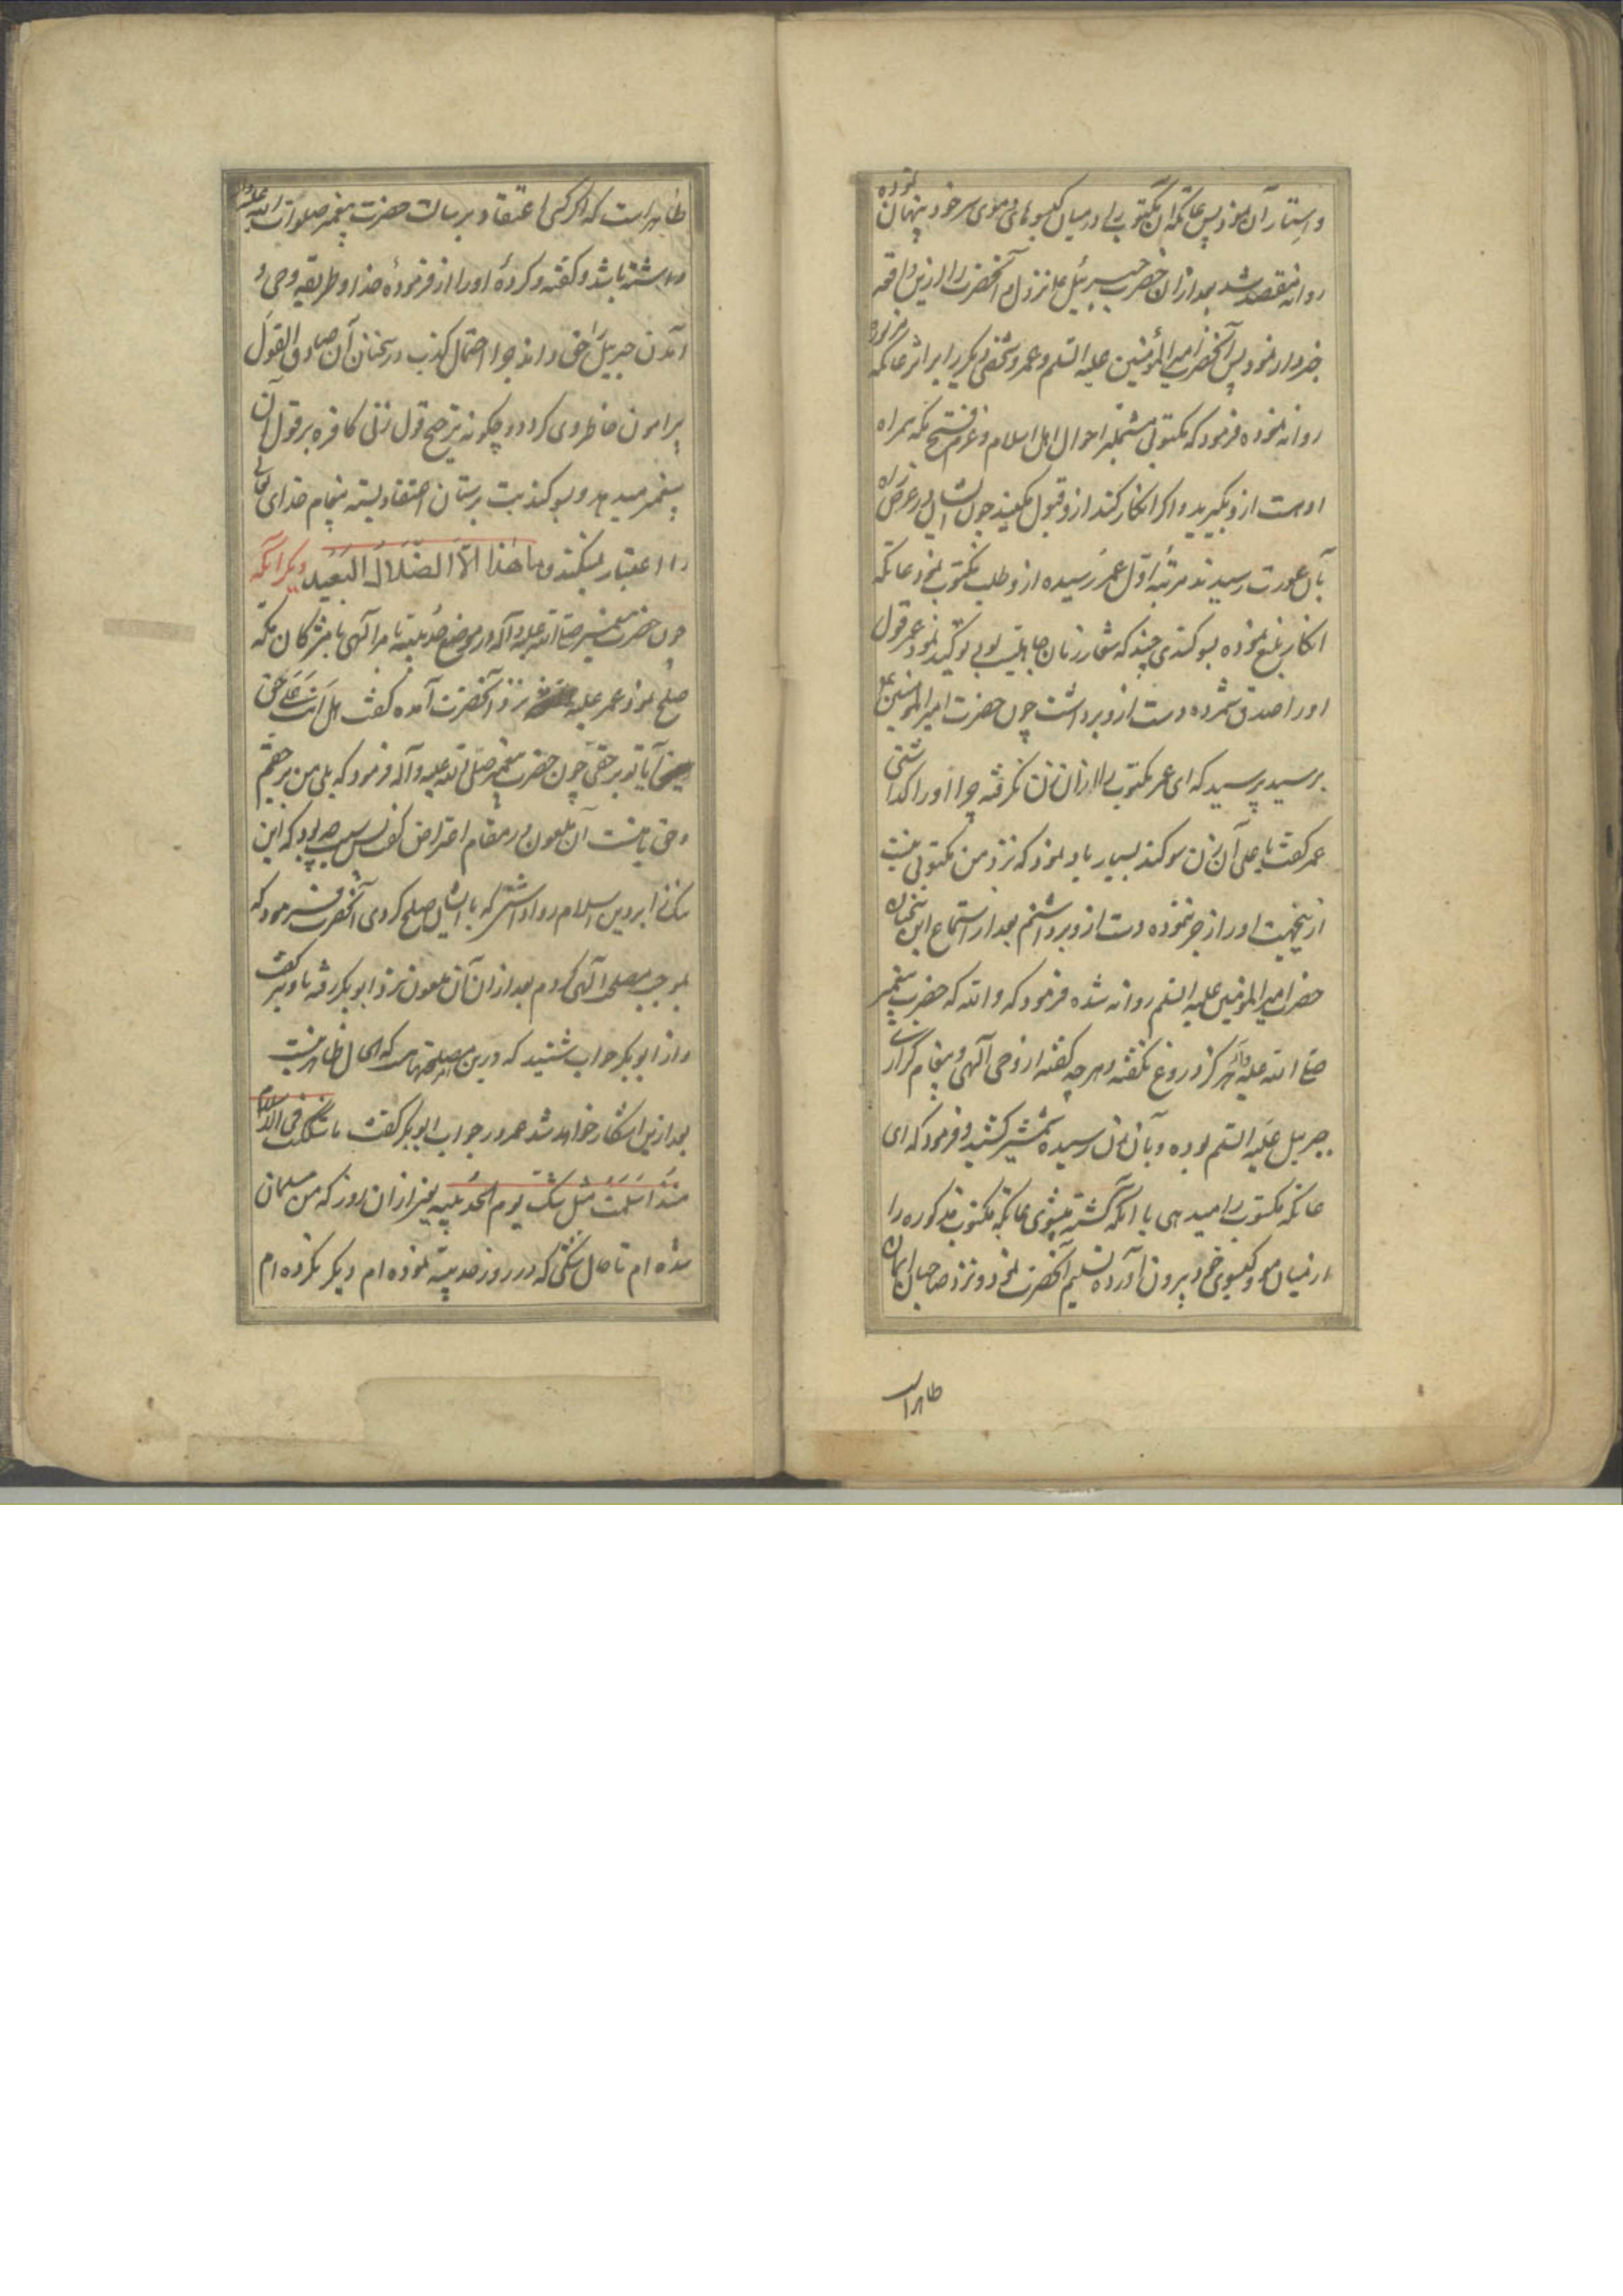 و استتار آن نمود پس عاتکه آن مکتوب را در میان کیسوهای و موی سر خود پنهان نموده
روانه مقصد شد بعد از ان حضرت جبرئیل نازل آنحضرت را ازین واقعه
خبردار نمود پس آنحضرت امیر المؤمنین علیه السلم و عمر و شخصی دیگر را بر اثر عاتکه
روانه نموده فرمود که مکتوبی مشتمل بر احوال اهل اسلام و عزم فتح مکه همراه
اوست ازو بگیرید و اگر انکار کند ازو قبول مکنید چون ایشان در عرض راه
بآن عورت رسیدند مرتبه اول عمر رسیده ازو طلب مکتوب نمود عاتکه
انکار بلیغ نموده بسوکندی چند که شعار زنان جاهلیت بود توکید نمود عمر قول
او را صدق شمرده دست ازو برداشت چون حضرت امیر المؤمنین ع
برسید پرسید که ای عمر مکتوب را ازان زن نکرفته چرا او را گذاشتی
عمر کفت یا علی آن زن سوکند بسیار یاد نمود که نزد من مکتوبی نیست
ازینجهت او را زجر ننموده دست ازو برداشتم بعد از استماع این سخنان
حضرت امیر المؤمنین علیه السلم روانه شده فرمود که والله که حضرت پیغمبر
صلی الله علیه وآله هرگز دروغ نکفته و هرچه کفته از وحی آلهی و پیغام گزاری
جبریل علیه السلم بوده و بآن زن رسیده شمشیر کشید و فرمود که ای
عاتکه مکتوب را میدهی یا آنکه کشته میشوی عاتکه مکتوب مذکوره را
از میان مو و کیسوی خود بیرون آورده تسلیم آنحضرت نمود و نزد صاحبان ایمان
ظاهر است
ظاهر است که اگر کسی اعتقاد بر رسالت حضرت پیغمبر صلوات الله علیه وآله
داشته باشد و کفته و کردهٔ او را از فرمودهٔ خدا و طریقه وحی و
آمدن جبریل حق داند چرا احتمال کذب در سخنان آن صادق القول
پیرامون خاطر وی کردد و چگونه ترجیح قول زنی کافره بر قول آن
پیغمبر میدهد و بسوکند بت پرستان اعتقاد بسته پیغام خدای تعالی
را اعتبار نمیکند و ما هٰذا الّا الضّلال البعید دیگر آنکه
چون حضرت پیغمبر صلی الله علیه وآله در موضع حدیبیه بامر آلهی با مشرکان مکه
صلح نمود عمر علیه نزد آنحضرت آمده کفت هل انت علی حق
یعنی آیا تو برحقی چون حضرت پیغمبر صلی الله علیه وآله فرمود که بلی من برحقم
و حق با منست آن ملعون در مقام اعتراض کفت پس سبب چه بود که این
ننک را بر دین اسلام روا داشتی که با ایشان صلح کردی آنحضرت فرمود که
بموجب مصلحت آلهی کردم بعد از ان آن ملعون نزد ابوبکر رفته با او نیز کفت
و از ابوبکر جواب شنید که درین امر مصلحتهاست که الحال ظاهر نیست
بعد ازین آشکار خواهد شد عمر در جواب ابوبکر کفت ما شککت فی الاسلام
منذ اسلمت مثل شک یوم الحدیبیه یعنی از ان روز که من مسلمان
شده ام تا حال شکی که در روز حدیبیه نموده ام دیگر نکرده ام